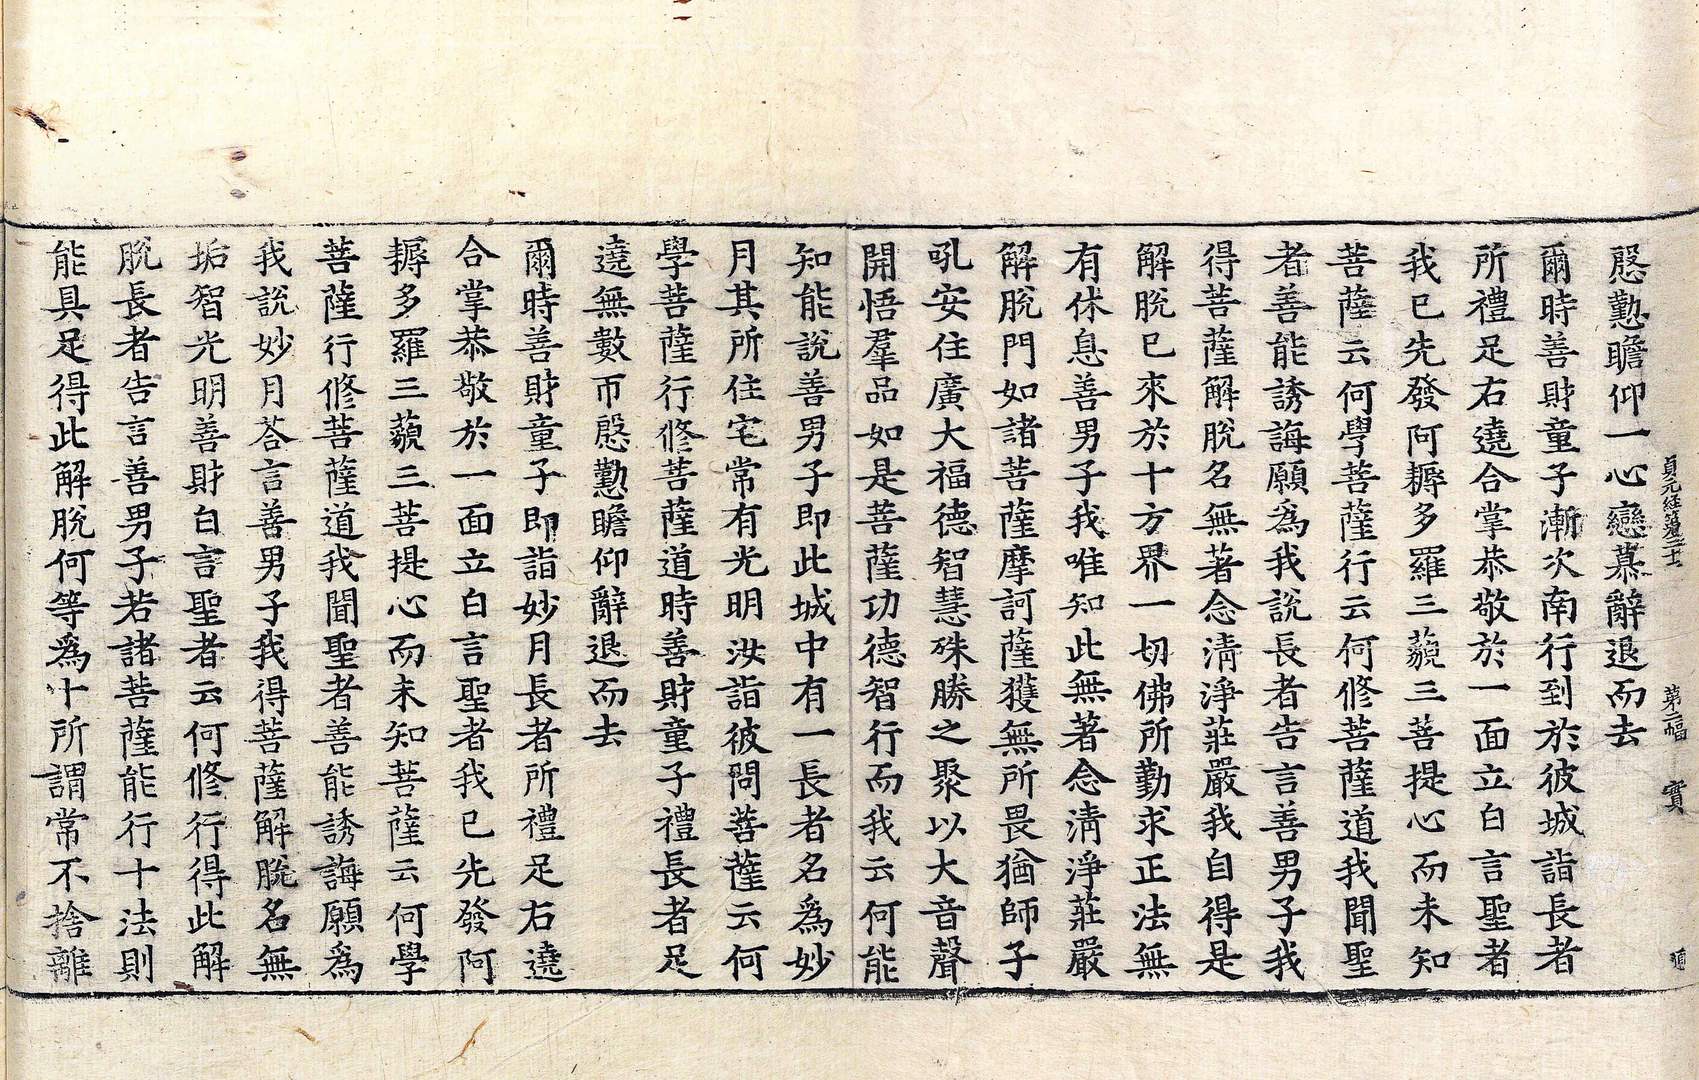 慇懃瞻仰一心戀慕辭退而去
爾時善財童子漸次南行到於彼城詣長者
所禮足右遶合掌恭敬於一面立白言聖者
我已先發阿耨多羅三藐三菩提心而未知
菩薩云何學菩薩行云何修菩薩道我聞聖
者善能誘誨願為我說長者告言善男子我
得菩薩解脫名無著念清淨莊嚴我自得是
解脫已來於十方界一切佛所勤求正法無
有休息善男子我唯知此無著念清淨莊嚴
解脫門如諸菩薩摩訶薩獲無所畏猶師子
吼安住廣大福德智慧殊勝之聚以大音聲
開悟羣品如是菩薩功德智行而我云何能
知能說善男子即此城中有一長者名為妙
月其所住宅常有光明汝詣彼問菩薩云何
學菩薩行修菩薩道時善財童子禮長者足
遶無數帀慇懃瞻仰辭退而去
爾時善財童子即詣妙月長者所禮足右遶
合掌恭敬於一面立白言聖者我已先發阿
耨多羅三藐三菩提心而未知菩薩云何學
菩薩行修菩薩道我聞聖者善能誘誨願為
我說妙月荅言善男子我得菩薩解脫名無
垢智光明善財白言聖者云何修行得此解
脫長者告言善男子若諸菩薩能行十法則
能具足得此解脫何等為十所謂常不捨離
貞元經第三十 第六幅 實